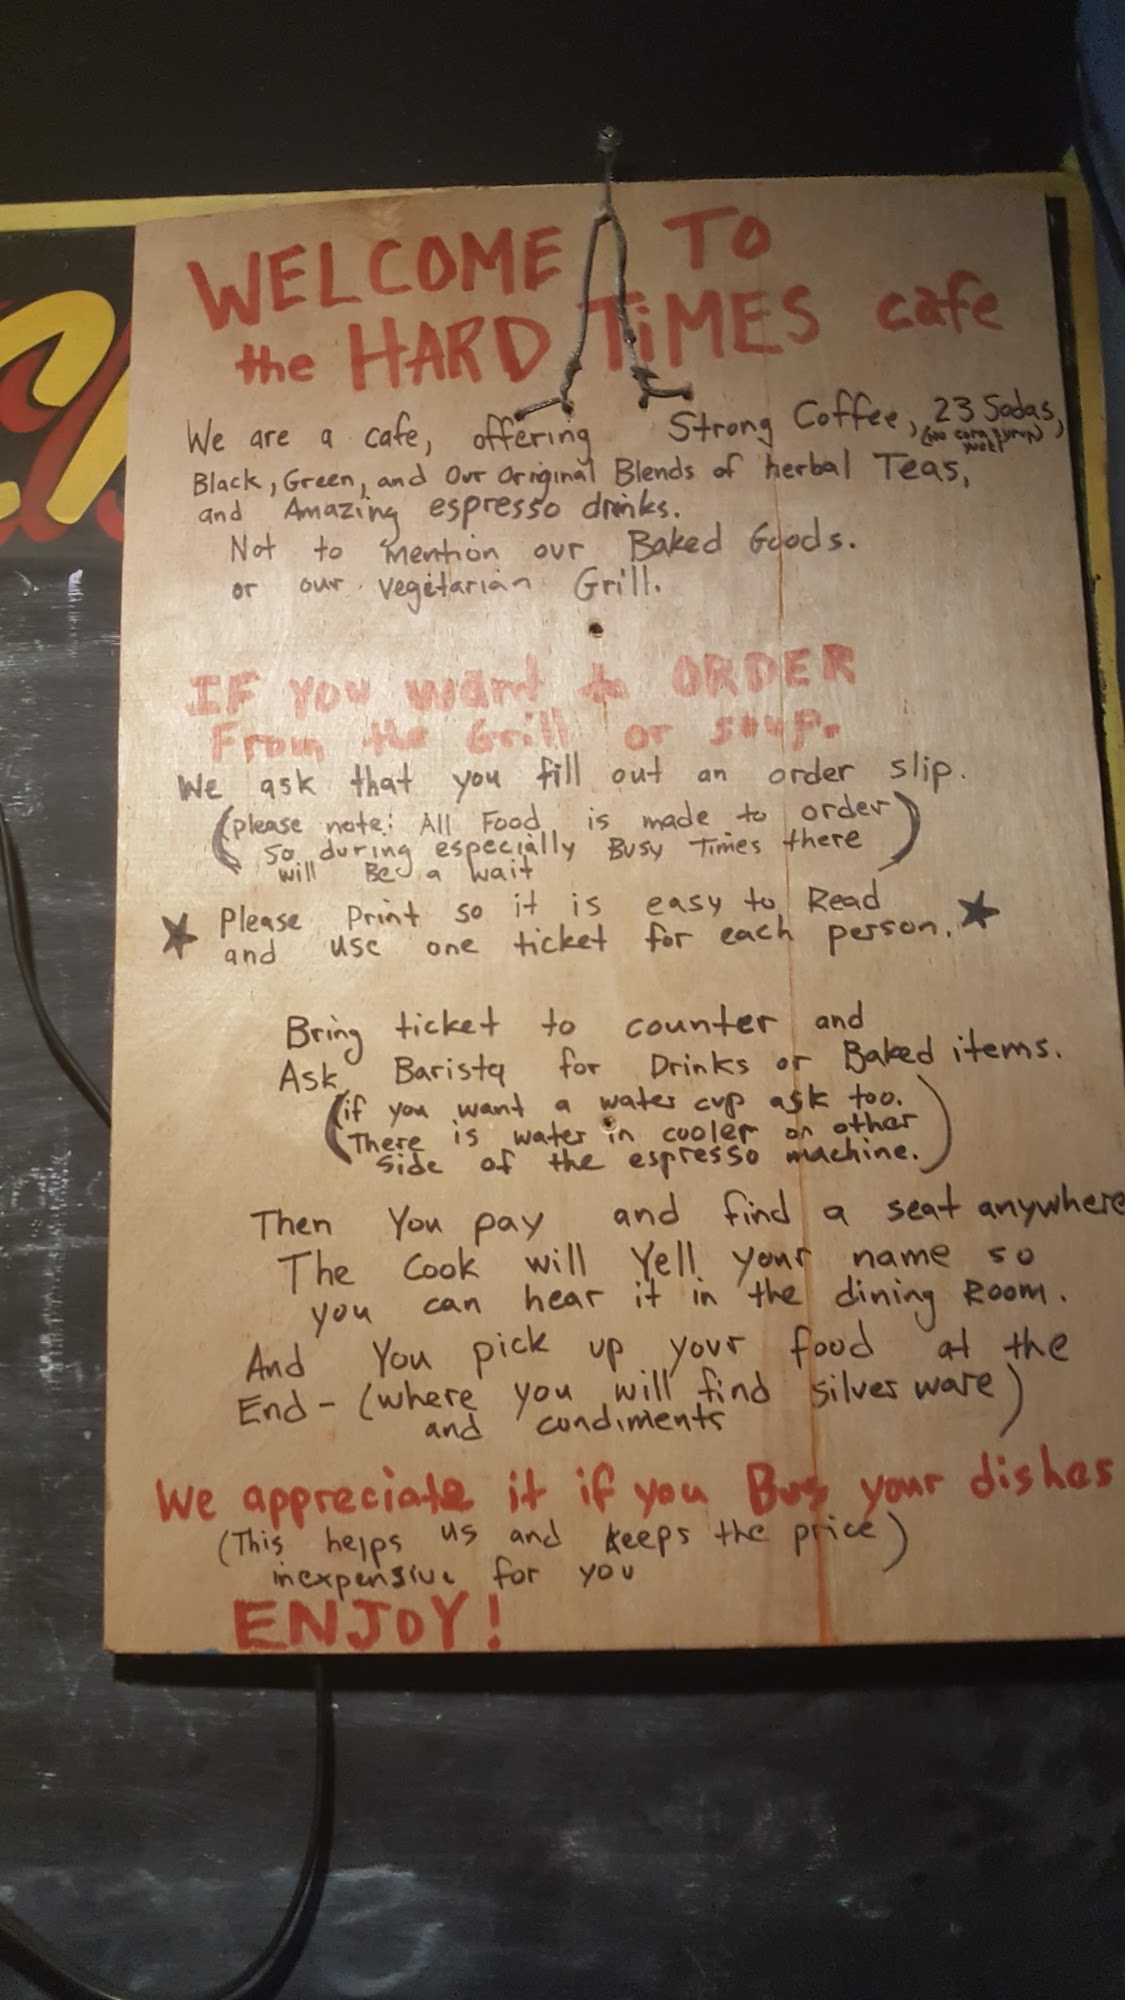 WELCOME TO
the HARD TiMES cafe
We are a cafe, offering Strong Coffee, 23 Sodas,
(No corn syrup)
Black, Green, and Our Original Blends of herbal Teas,
and Amazing espresso drinks.
Not to mention our Baked Goods.
or our vegetarian Grill.
IF YOU want to ORDER
From the Grill or soup.
We ask that you fill out an order slip.
(please note: All Food is made to order
so during especially Busy Times there
will Be a wait)
★ Please print so it is easy to Read ★
and use one ticket for each person.
Bring ticket to counter and
Ask Barista for Drinks or Baked items.
(if you want a water cup ask too.
There is water in cooler on other
side of the espresso machine.)
Then You pay and find a seat anywhere
The Cook will Yell your name so
you can hear it in the dining Room.
And You pick up your food at the
End - (where you will find silver ware)
and condiments
We appreciate it if you Bus your dishes
(This helps us and keeps the price)
inexpensive for you
ENJOY!